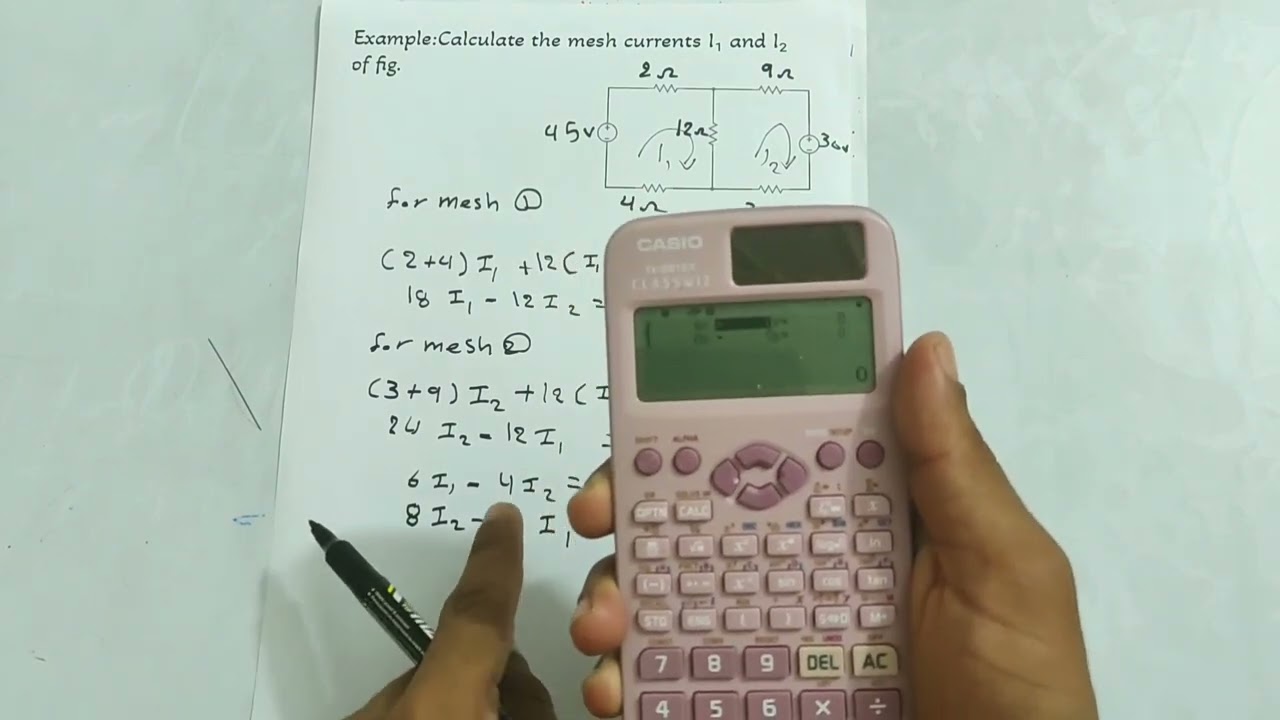 Example:Calculate the mesh currents I₁ and I₂
of fig.
2Ω 9Ω
45v 12Ω 30v
I₁ I₂
4Ω
for mesh ①
(2+4) I₁ +12( I₁
18 I₁ - 12 I₂ =
for mesh ②
(3+9) I₂ +12( I
24 I₂ - 12 I₁ =
6 I₁ - 4 I₂ =
8 I₂ - I₁
CASIO
CLASSWIZ
0
SHIFT ALPHA SETUP
OPTN CALC
sin cos tan
STO ENG ( ) S⇔D M+
7 8 9 DEL AC
4 5 6 × ÷